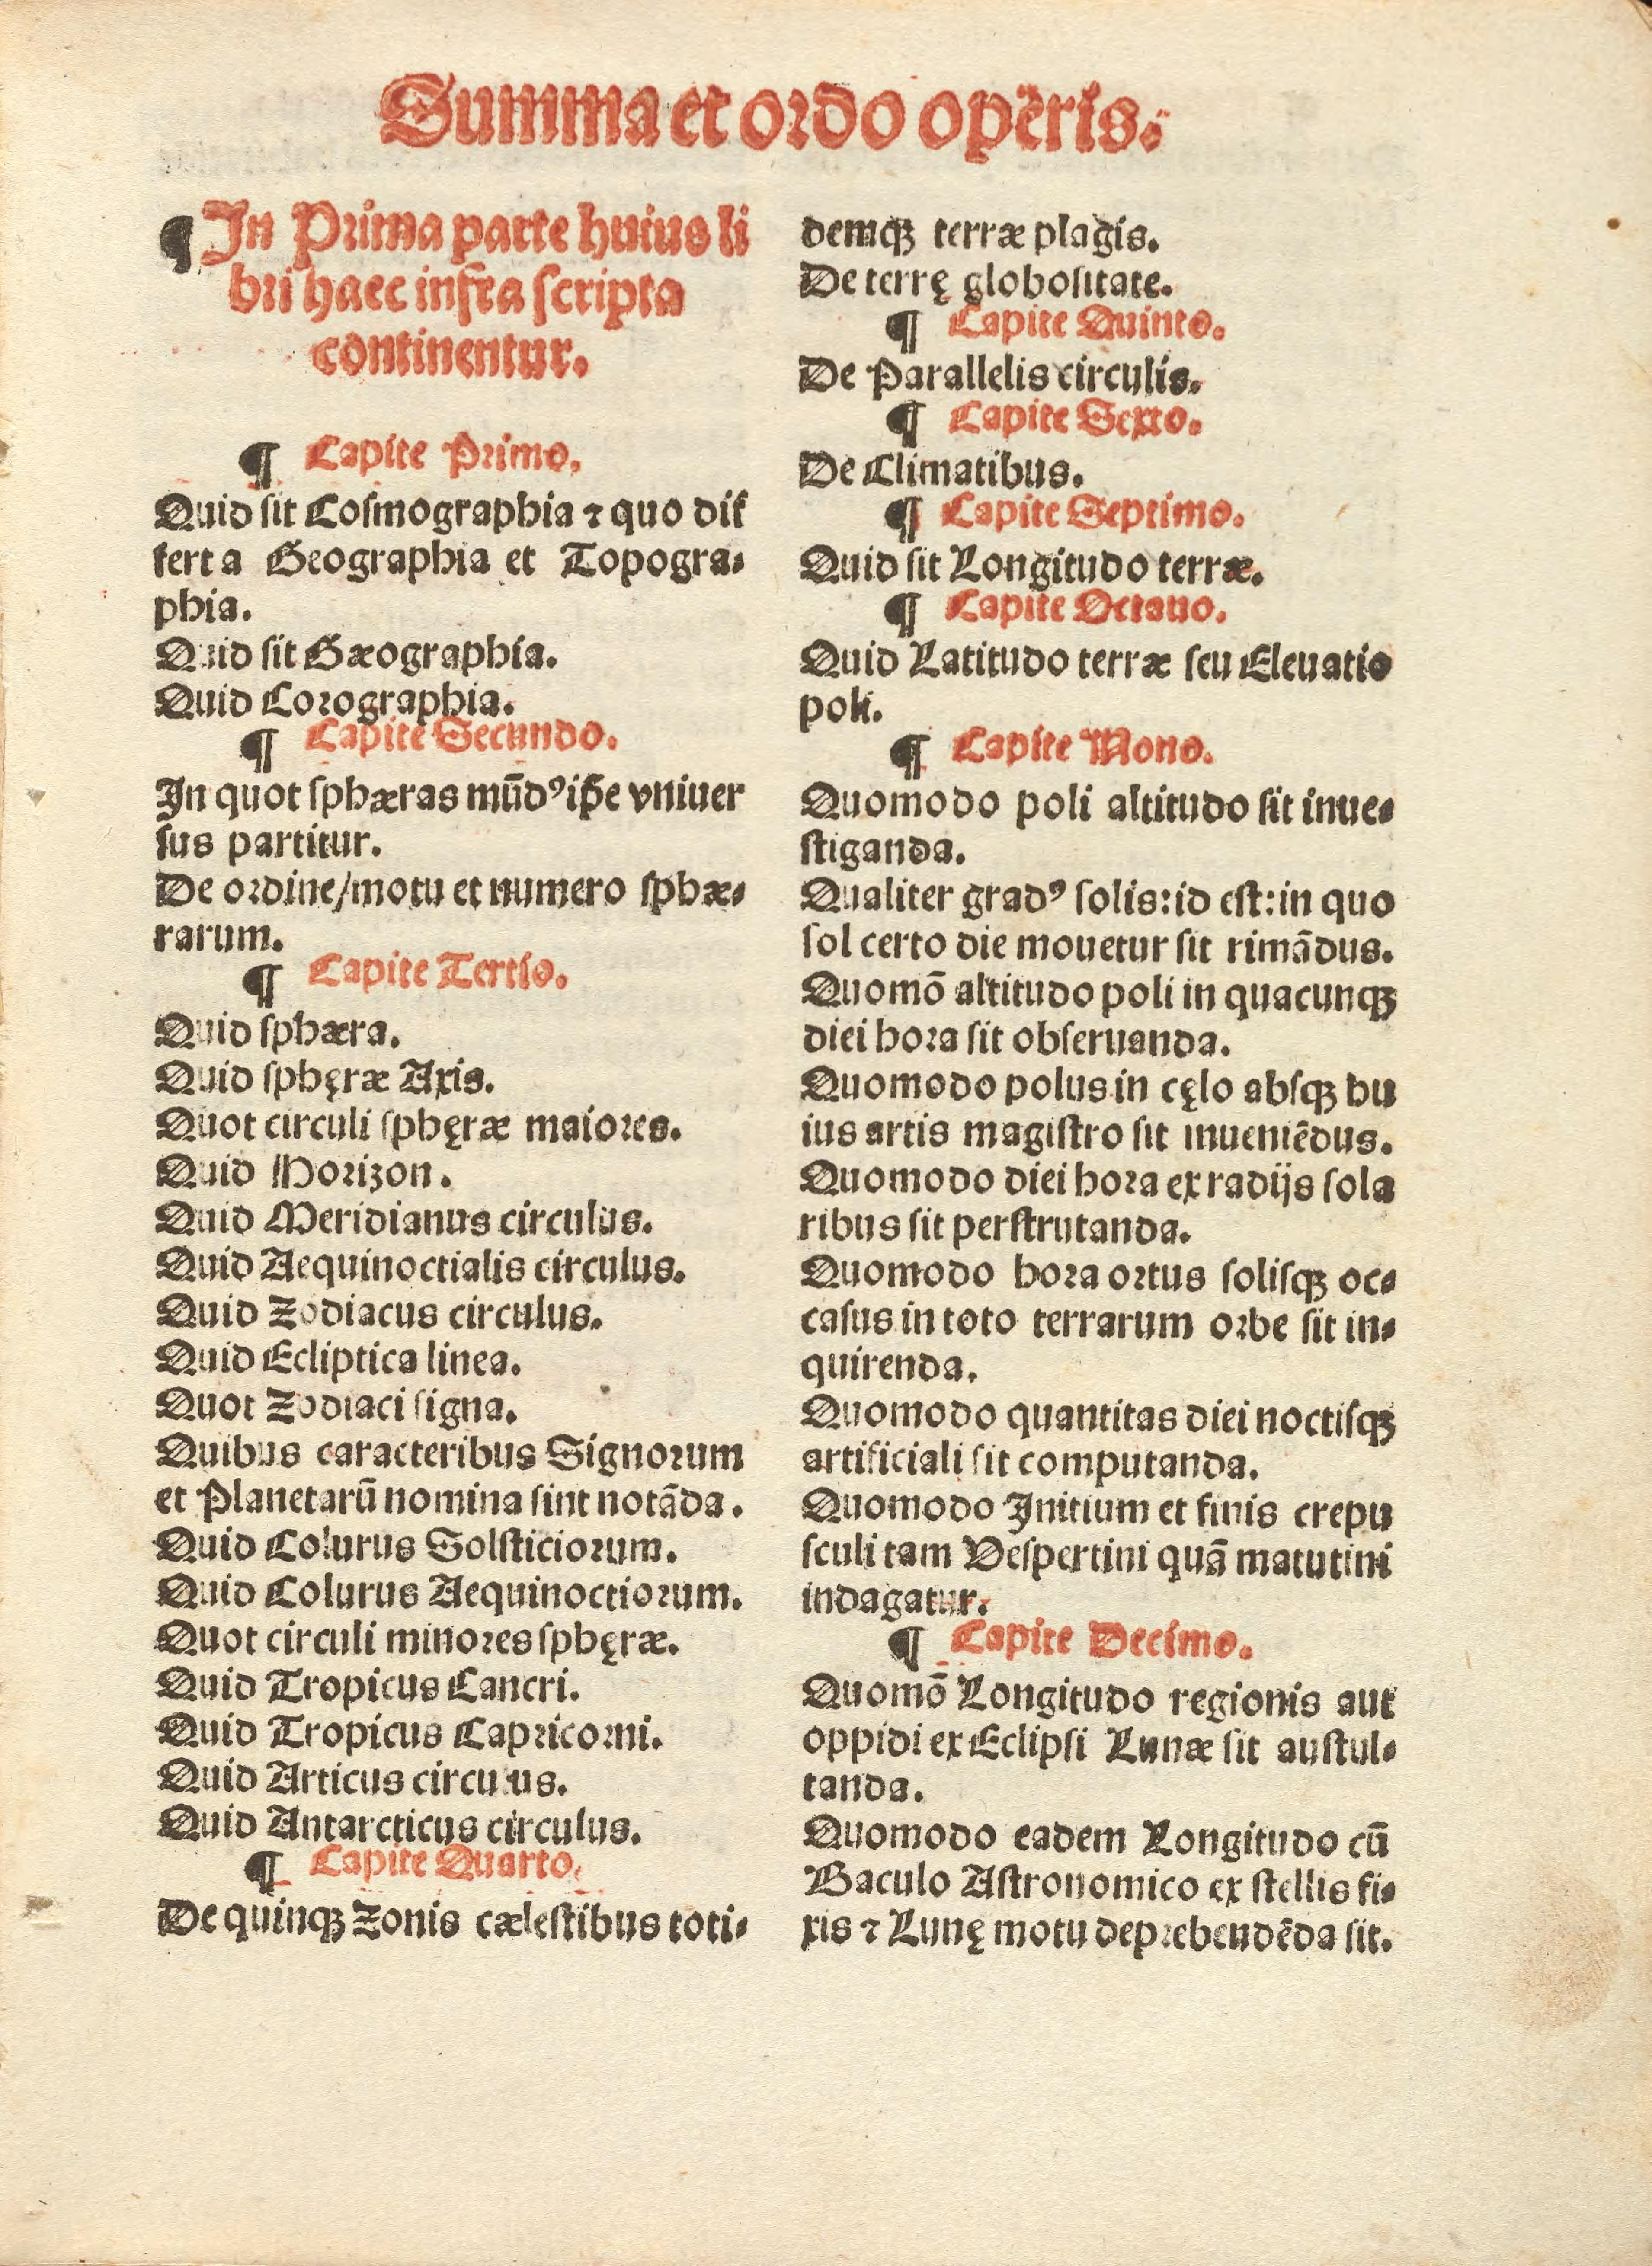 Summa et ordo operis.
¶ In Prima parte huius li
bri haec infra scripta
continentur.
¶ Capite Primo.
Quid sit Cosmographia ⁊ quo dif
fert a Geographia et Topogra-
phia.
Quid sit Gæographia.
Quid Corographia.
¶ Capite Secundo.
In quot sphæras mūdꝰ ip̄e vniuer
sus partitur.
De ordine/motu et numero sphæ-
rarum.
¶ Capite Tertio.
Quid sphæra.
Quid sphęræ Axis.
Quot circuli sphęræ maiores.
Quid Horizon.
Quid Meridianus circulus.
Quid Aequinoctialis circulus.
Quid Zodiacus circulus.
Quid Ecliptica linea.
Quot Zodiaci signa.
Quibus caracteribus Signorum
et Planetarū nomina sint notāda.
Quid Colurus Solsticiorum.
Quid Colurus Aequinoctiorum.
Quot circuli minores sphęræ.
Quid Tropicus Cancri.
Quid Tropicus Capricorni.
Quid Articus circulus.
Quid Antarcticus circulus.
¶ Capite Quarto.
De quinqꝫ Zonis cælestibus toti-
demqꝫ terræ plagis.
De terrę globositate.
¶ Capite Quinto.
De Parallelis circulis.
¶ Capite Sexto.
De Climatibus.
¶ Capite Septimo.
Quid sit Longitudo terræ.
¶ Capite Octauo.
Quid Latitudo terræ seu Eleuatio
poli.
¶ Capite Nono.
Quomodo poli altitudo sit inue-
stiganda.
Qualiter gradꝰ solis:id est:in quo
sol certo die mouetur sit rimādus.
Quomō altitudo poli in quacunqꝫ
diei hora sit obseruanda.
Quomodo polus in cęlo absqꝫ hu
ius artis magistro sit inueniēdus.
Quomodo diei hora ex radijs sola
ribus sit perstrutanda.
Quomodo hora ortus solisqꝫ oc-
casus in toto terrarum orbe sit in-
quirenda.
Quomodo quantitas diei noctisqꝫ
artificiali sit computanda.
Quomodo Initium et finis crepu
sculi tam Vespertini quā matutini
indagatur.
¶ Capite Decimo.
Quomō Longitudo regionis aut
oppidi ex Eclipsi Lunæ sit austul-
tanda.
Quomodo eadem Longitudo cū
Baculo Astronomico ex stellis fi-
xis ⁊ Lunę motu deprehendēda sit.